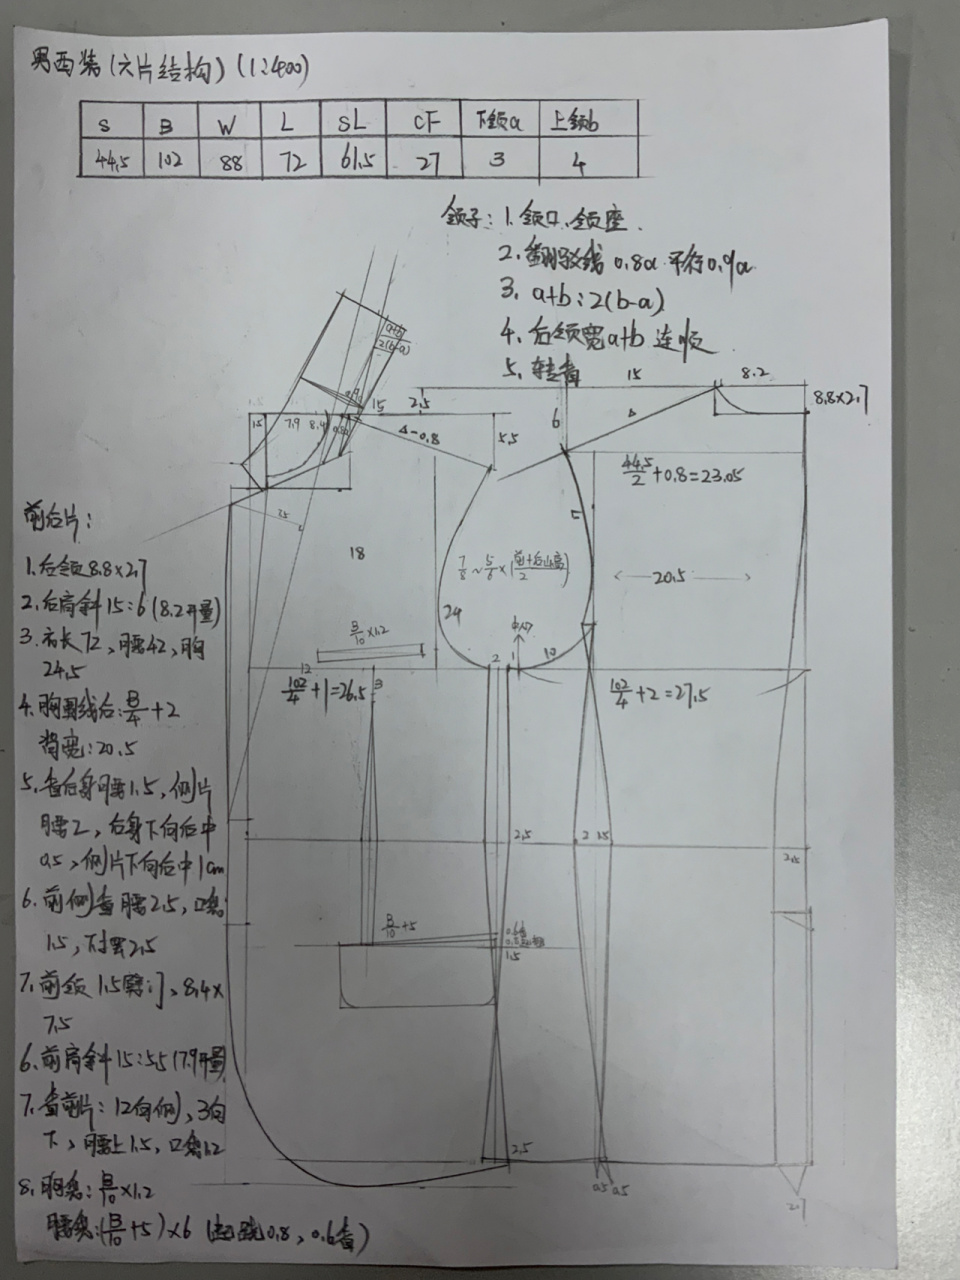 男西装(六片结构)(1:400)
S B W L SL CF 下领a 上领b
44.5 102 88 72 61.5 27 3 4
领子: 1. 领口、领座.
2. 翻驳线 0.8a 平行0.9a
3. a+b:2(b-a)
4. 后领宽a+b 连顺
5.
a+b
2(b-a)
15 8.2
2.5
15
8.8×2.7
1.5 7.9 8.4
Δ-0.8
5.5
6
Δ
44.5/2 +0.8=23.05
18
7/8~5/6×(前+后山高/2)
20.5
24
B/10×1.2
10
12
102/4+1=26.5
3
2
1
102/4+2=27.5
2.5
2 1.5
2.5
B/10+5
1.5
2.5
0.5 0.5
前后片:
1.后领8.8×2.7
2.后肩斜15:6(8.2开量)
3.衣长72,腰42,胸
24.5
4.胸围线后:B/4+2
背宽:20.5
5.省后身腰1.5,侧片
腰2,后身下向后中
0.5,侧片下向后中1cm
6.前侧省腰2.5,口袋
1.5,下摆2.5
7.前领1.5劈门,8.4×
7.5
6.前肩斜15:5.5(7.9开量)
7.省前片:12向侧,3向
下,腰上1.5,口袋1.2
8.胸袋:B/10×1.2
腰袋:(B/10+5)×6(起翘0.8,0.6省)